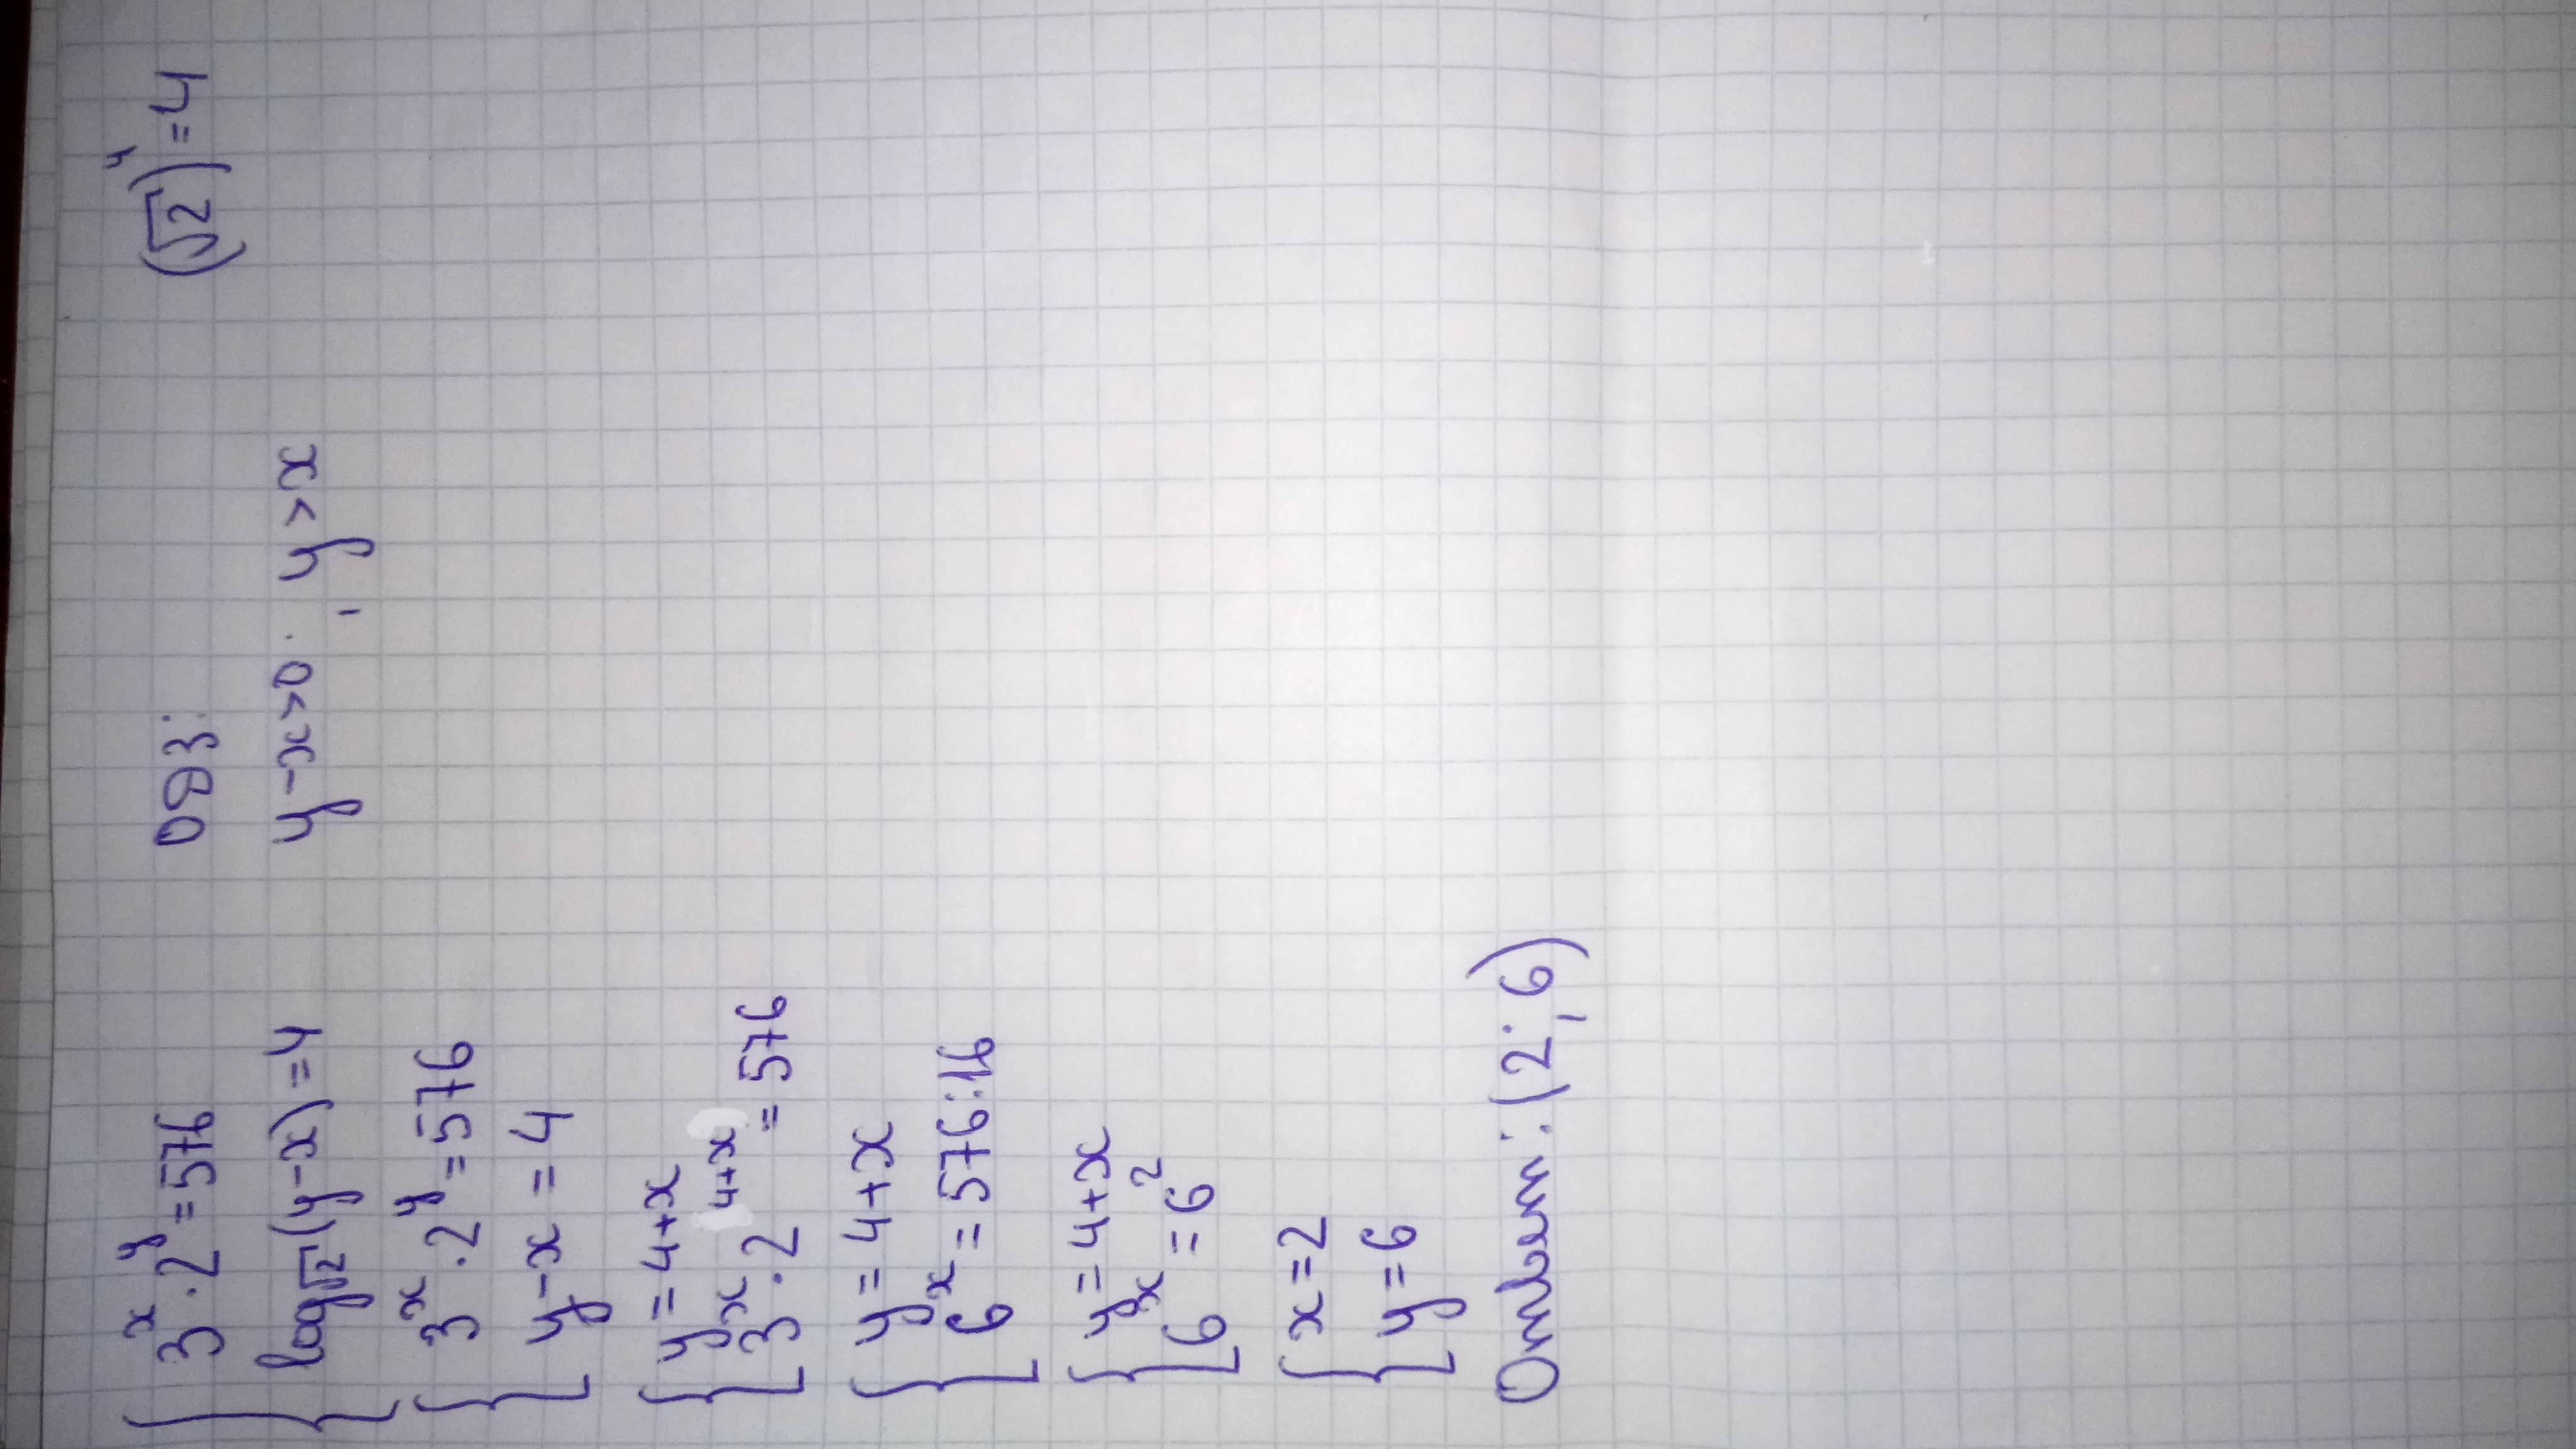 3ˣ · 2ʸ = 576 ОДЗ: (√2)⁴ = 4
log√2 (y - x) = 4 y - x > 0 ; y > x
3ˣ · 2ʸ = 576
y - x = 4
y = 4 + x
3ˣ · 2⁴⁺ˣ = 576
y = 4 + x
6ˣ = 576 : 16
y = 4 + x
6ˣ = 6²
x = 2
y = 6
Ответ: (2; 6)